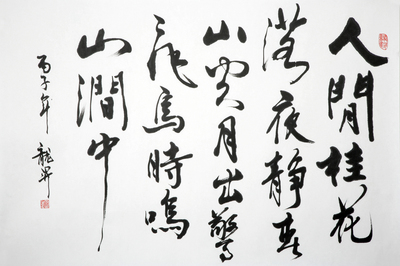 人閒桂花
落夜靜春
山空月出驚
飛鳥時鳴
山澗中
丙子年 龍昇